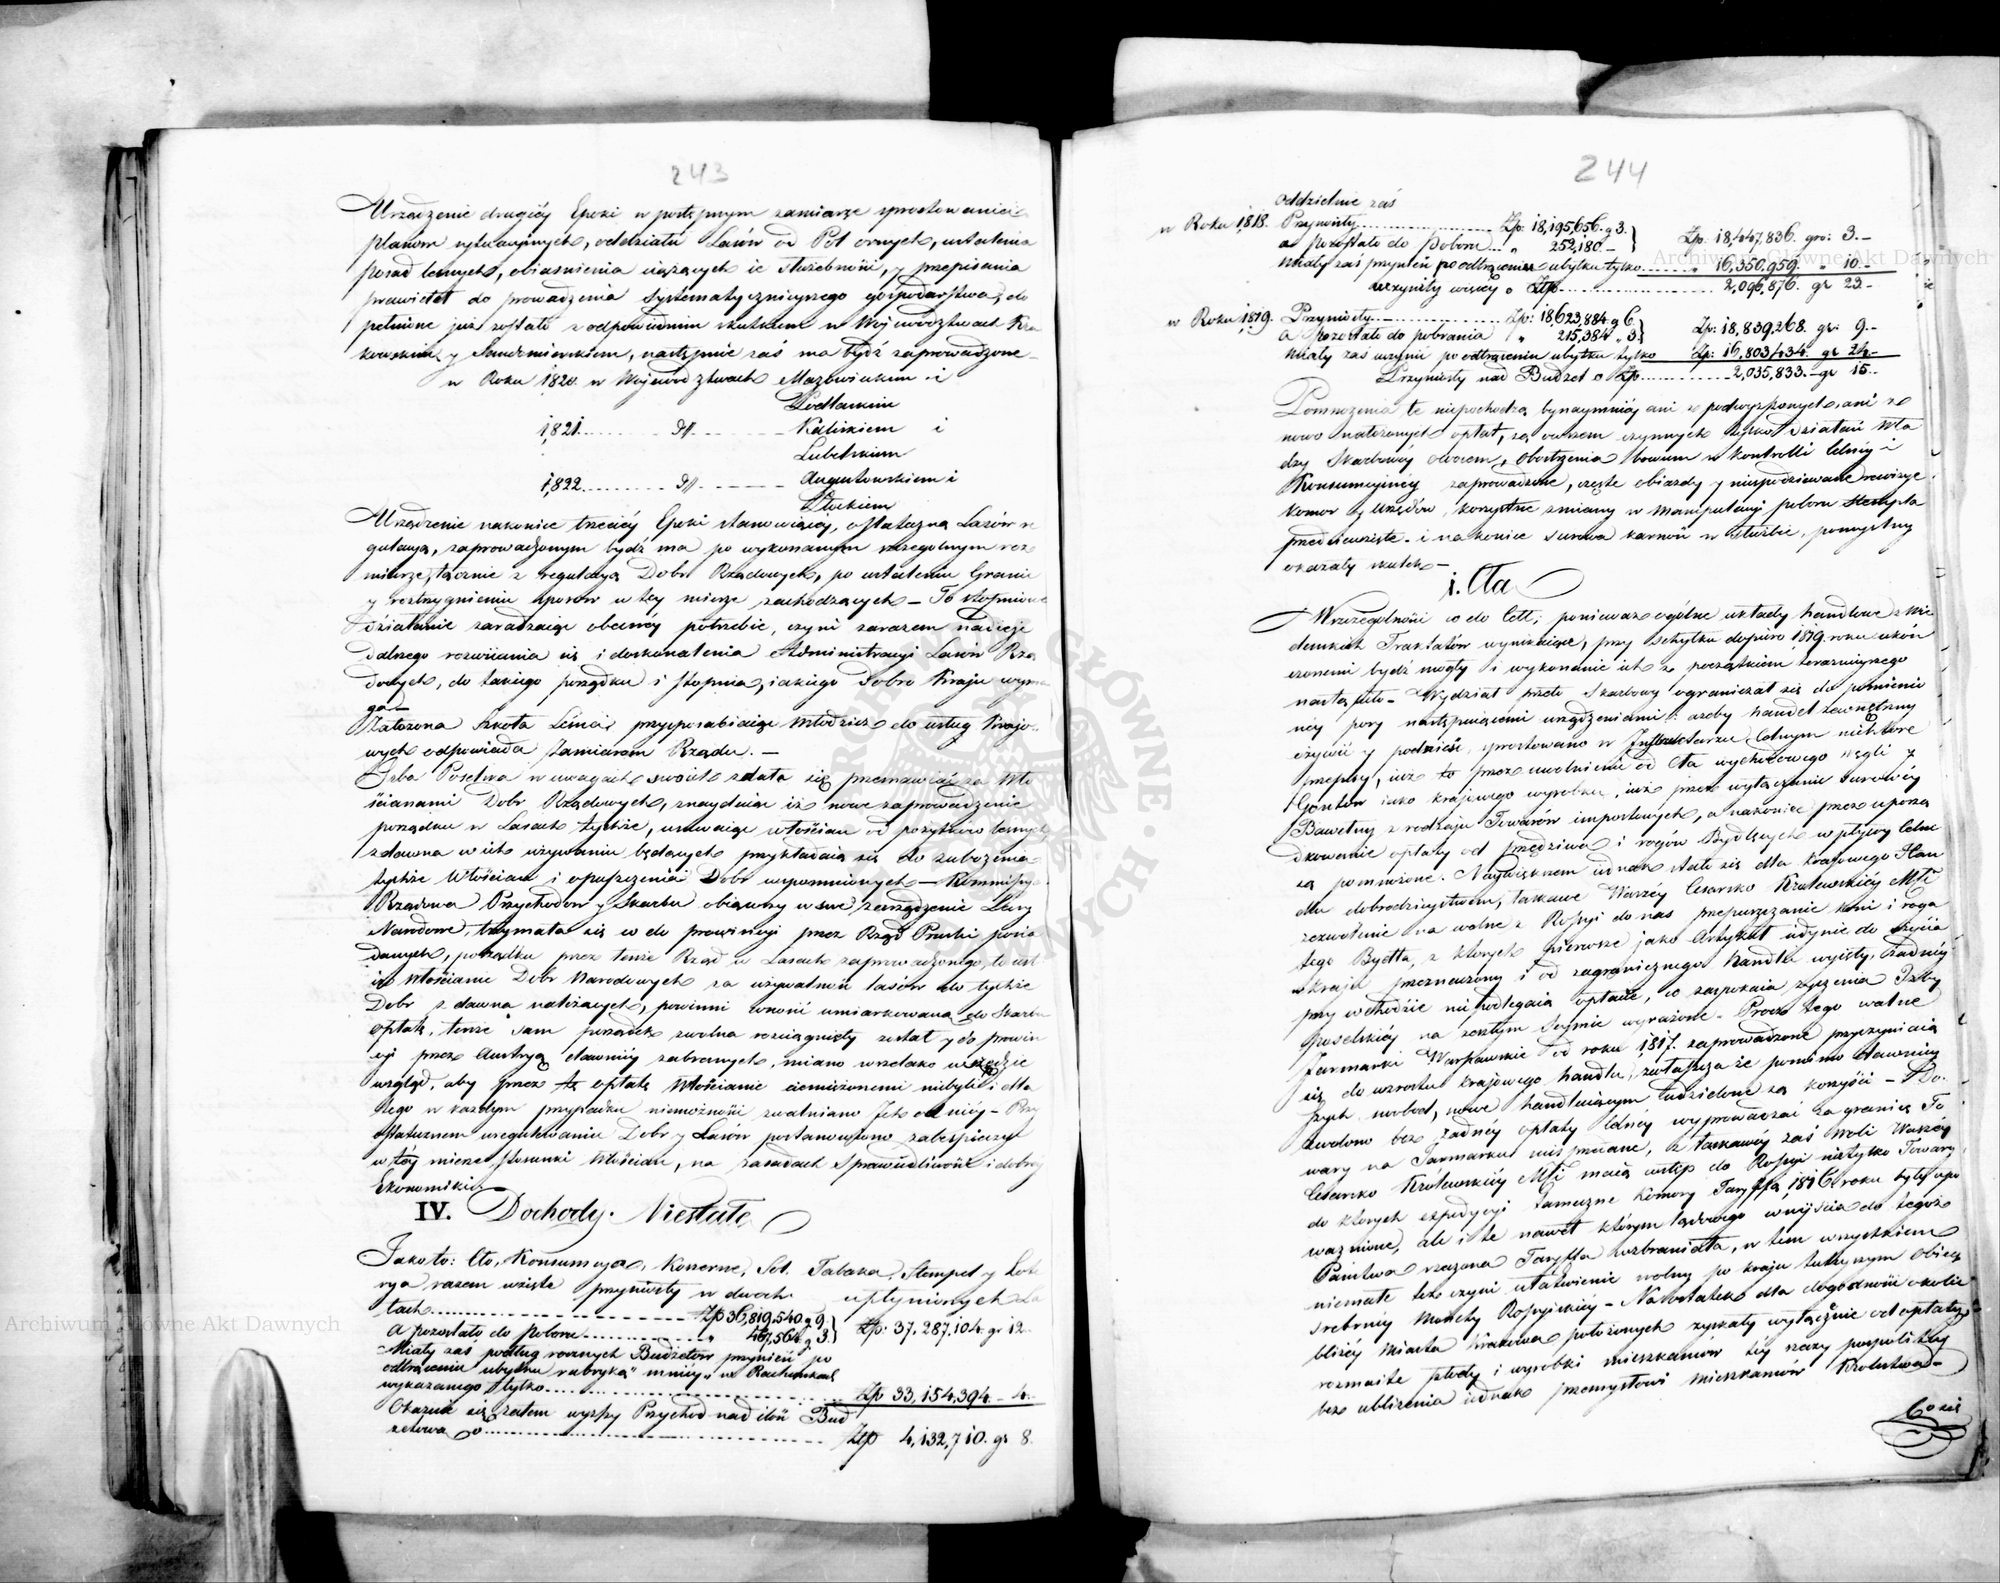 243
Urządzenie drugiéy Epoki w postępnym zamiarze sprostowania
planów sytuacyjnych, oddziału Lasów od Pól ornych, ustalenia
posad leśnych, obiaśnienia ciążących ie służebności, y przepisania
prawideł do prowadzenia systematycznieyszego gospodarstwa, do
pełnione już zostało z odpowiednim skutkiem w Województwach Kra
kowskim y Sandomierskiem, następnie zaś ma bydź zaprowadzone
w Roku 1820 w Województwach Mazowieckiem i
Podlaskiem
1821 d° Kaliskiem i
Lubelskiem
1822 d° Augustowskiem i
Płockiem
Urządzenie nakoniec trzeciéy Epoki stanowiącéy, ostateczną Lasów re
gulacyą, zaprowadzonym bydź ma po wykonanym szczególnym roz
miarze, łącznie z regulacyą Dóbr Rządowych, po ustaleniu Granic
y rozstrzygnieniu sporów w téy mierze zachodzących – To stopniowe
działanie zaradzaiąc obecnéy potrzebie, czyni zarazem nadzieję
dalszego rozwiiania się i doskonalenia Administracyi Lasów Rzą
dowych, do takiego porządku i stopnia, iakiego dobro Kraju wyma
ga –
Założona Szkoła Leśna, przysposabiaiąc młodzież do usług Krajo-
wych odpowiada zamiarom Rządu. –
Izba Poselska w uwagach swoich zdała się przemawiać za Wło
ścianami Dóbr Rządowych, znayduiąc iż nowe zaprowadzenie
porządku w Lasach tychże, usuwaiąc włościan od pożytków leśnych
zdawna w ich używaniu będących przykładaią się do zubożenia
tychże Włościan i opuszczenia Dóbr wspomnionych – Kommissya
Rządowa Przychodów y Skarbu obiąwszy w swe zarządzenie Lasy
Narodowe, trzymała się w do prowincyi przez Rząd Pruski posia
danych, porządku przez tenże Rząd w Lasach zaprowadzonego, to iest
iż Włościanie Dóbr Narodowych za używalność lasów do tychże
Dóbr z dawna należących, powinni wnosić umiarkowaną do Skarbu
opłatę, tenże sam porządek zwolna rozciągnięty został y do prowin
cyi przez Austryą dawniéy zabranych, miano wszelako wszędzie
wzgląd, aby przez tę opłatę Włościanie ciemiężonemi niebyli i dla
tego w każdym przypadku niemożności zwalniano Ich od niéy – Przy
ostatecznem uregulowaniu Dóbr y Lasów postanowiono zabespieczyć
w téy mierze stosunki Włościan, na zasadach Sprawiedliwości i dobréy
Ekonomiki.
IV. Dochody Niestałe
Jako to: Cło, Konsumcya, Koszerne, Sól, Tabaka, Stempel y Lote
rya razem wzięte przyniosły w dwóch upłynionych La
tach Złp 36,819,540 g 9
a pozostało do poboru " 467,564 g 3 Złp: 37,287,104 gr 12
Miały zaś podług rocznych Budżetów przynieść po
odtrąceniu ubytku rubryką "mniéy" w Rachunkach
wykazanego tylko Złp 33,154,394 – 4.
Okazuie się zatem wyższy Przychód nad ilość Bud
żetową o Złp 4,132,710. gr 8.
244
oddzielnie zaś
w Roku 1818. Przyniosły Złp: 18,195,656. g 3.
a pozostało do poboru " 252,180 – Złp. 18,447,836. gro: 3. –
Miały zaś przynieść po odtrąceniu ubytku tylko " 16,350,959. " 10. –
uczyniły więcéy o Złp 2,096,876. gr 23 –
w Roku 1819. Przyniosły Złp: 18,623,884 g 6
a pozostało do pobrania " 215,384 " 3 Złp: 18,839,268. gr: 9. –
Miały zaś uczynić po odtrąceniu ubytku tylko Złp: 16,803,434. gr 24 –
Przyniosły nad Budżet o Złp 2,035,833. – gr 15 –
Pomnożenia te niepochodzą bynaymniéy ani z podwyższonych, ani z
nowo nałożonych opłat, są owszem czynnych tylko działań Wła
dzy Skarbowéy owocem, obostrzenia bowiem w kontrolli Celnéy i
Konsumcyinéy zaprowadzone, częste obiazdy y niespodziewane rewizye
Komor y Urzędów, korzystne zmiany w manipulacyi poboru Stempla
przedsięwzięte i nakoniec surowa karność w służbie, pomyślny
okazały skutek –
1. Cła
W szczególności co do Ceł, ponieważ ogólne układy handlowe z Wie
deńskich Traktatów wynikaiące, przy schyłku dopiero 1819 roku ukoń
czonemi bydź mogły i wykonanie ich z początkiem teraznieyszego
nastąpiło – Wydział przeto Skarbowy ograniczał się do pomienio
néy pory następuiącemi urządzeniami: ażeby handel zewnętrzny
ożywić y podnieść, sprostowano w Instruktarzu Celnym niektóre
przepisy, iuż to przez uwolnienie od Cła wychodowego węgli y
Gontów iako krajowego wyrobku, iuż przez wyłączenie surowéy
Bawełny z rodzaju Towarów importowych, a nakoniec przez uporzą
dkowanie opłaty od przędziwa i rogów Bydlęcych wpływy Celne
są pomnożone. Naywiększem iednak stało się dla krajowego Han
dlu dobrodzieystwem, łaskawe Waszéy Cesarsko Królewskiéy Mści
zezwolenie na wolne z Rossyi do nas przepuszczanie koni i roga
tego Bydła, z których pierwsze jako Artykuł iedynie do użycia
w kraju przeznaczony i od zagranicznego handlu wyięty, żadnéy
przy wchodzie nie podlegaią opłacie, co zaspokaia życzenia Izby
Poselskiéy na zeszłym Seymie wyrażone – Prócz tego walne
Jarmarki Warszawskie od roku 1817. zaprowadzone przyczyniaią
się do wzrostu krajowego handlu, zwłaszcza że pomimo dawniey
szych swobód, nowe handluiącym udzielone są korzyści – Do-
zwolono bez żadnéy opłaty Celnéy wyprowadzać za granicę To
wary na Jarmarku niesprzedane, z łaskawéy zaś woli Waszéy
Cesarsko Królewskiéy Mści maią wstęp do Rossyi nietylko Towary
do których expedycyi tameczne Komory Taryffą 1816 roku były upo
ważnione, ale i te nawet którym lądowego wnijścia do tegoż
Państwa rzeczona Taryffa wzbraniała, w tem wszystkiem
niemałe też czyni ułatwienie wolny po kraju tutejszym obieg
srebrnéy Monety Rossyiskiéy – Naostatek dla dogodności okolic
bliżéy Miasta Krakowa położonych zyskały wyłącznie od opłaty
rozmaite płody i wyrobki mieszkańców téy rzeczy pospolitéy
bez ubliżenia iednak przemysłowi mieszkańców Królestwa –
Co zaś